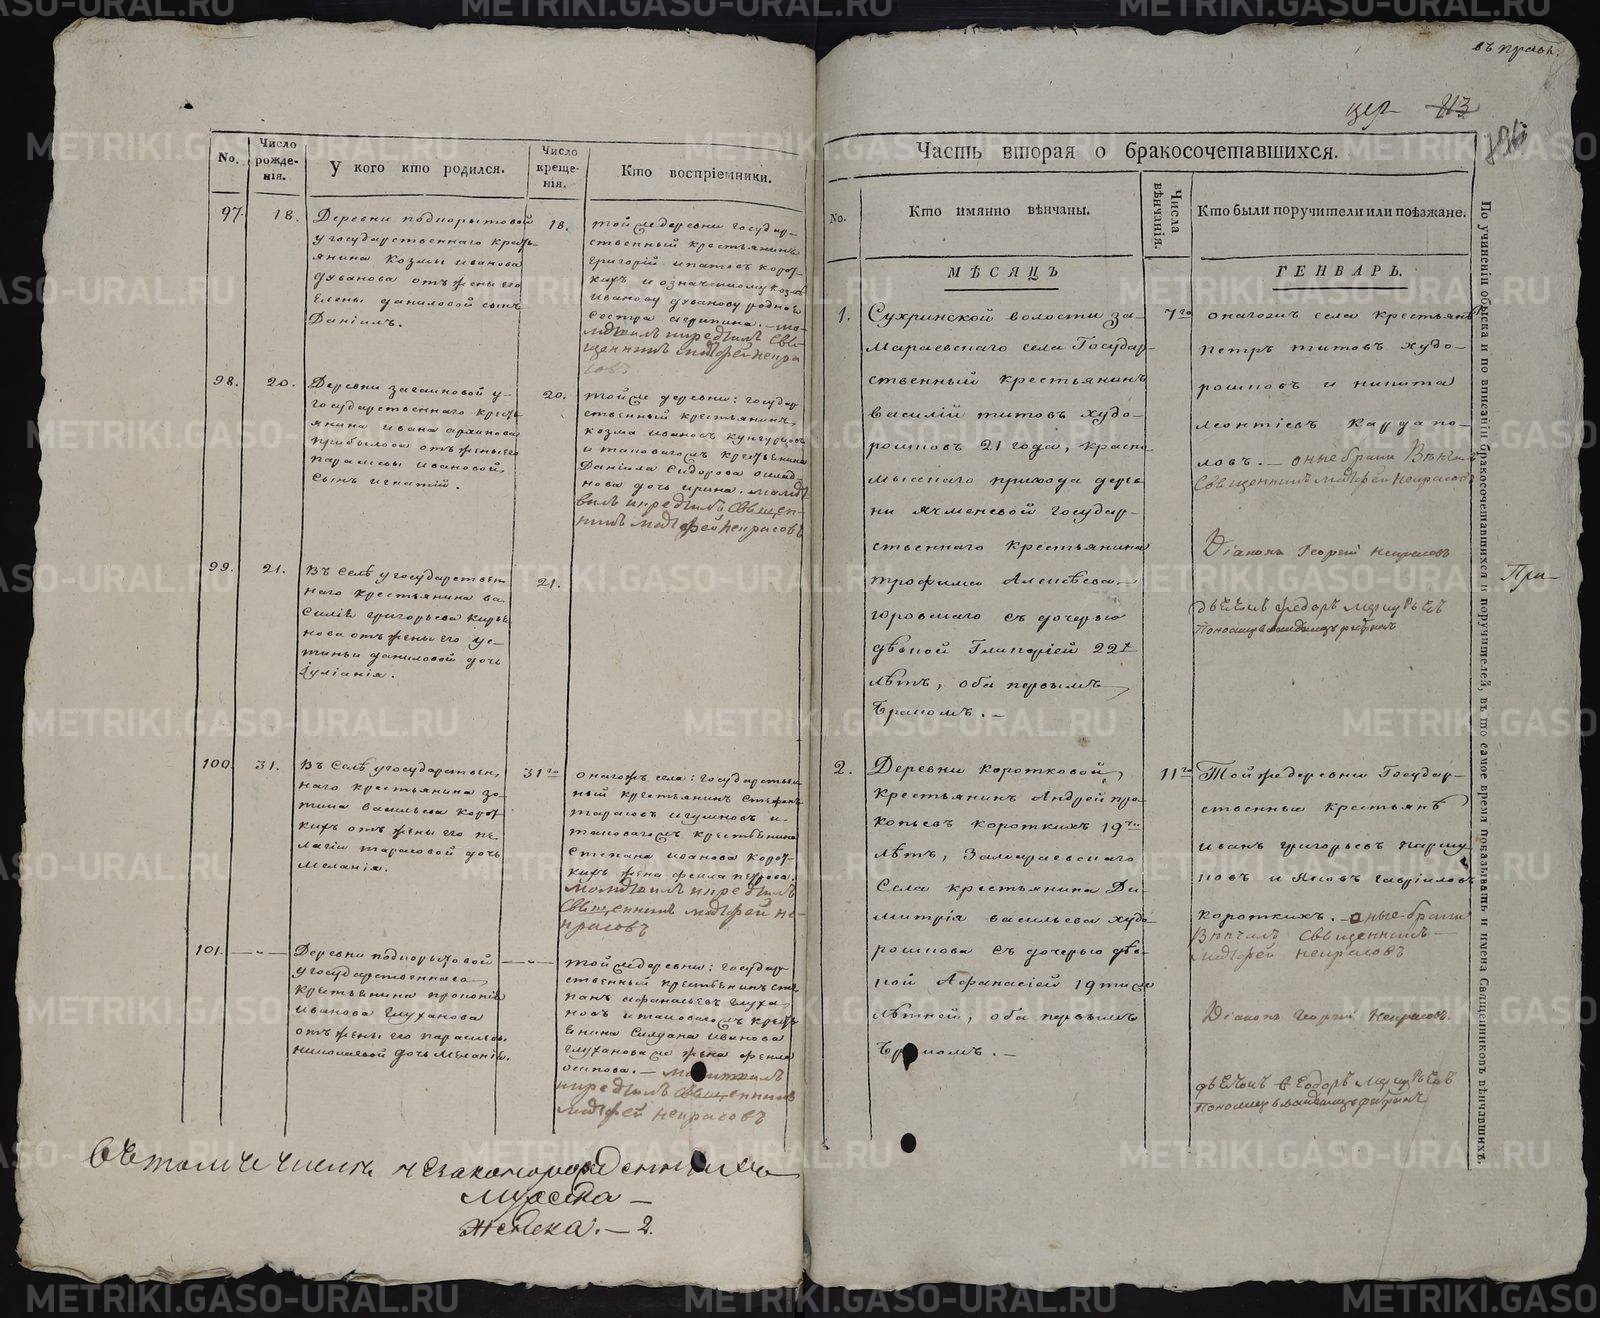 въ правк.
цер 213
No.
Число рожде-нія.
У кого кто родился.
Число креще-нія.
Кто воспріемники.
97.
18.
Деревни подкорытовой
у государственнаго кресть-
янина Козмы иванова
духанова отъ жены его
Елены даниловой сынъ
Даніилъ.
18.
той же деревни государ-
ственный крестьянинъ
григорій ипатовъ корот-
кихъ и означенному козмѣ
иванову духанову родная
сестра агрипина. — мо-
литвилъ и крестилъ Свя-
щенникъ матфей некра
совъ
98.
20.
Деревни загаиновой у-
государственнаго кресть-
янина ивана архипова
прибылова отъ жены его
парасковьи ивановой,
сынъ игнатій.
20.
той же деревни: государ
ственный крестьянинъ
козма ивановъ кунгурцовъ
и таковагожъ крестьянина
Даніила Сидорова
нова дочь ирина. молит
вилъ и крестилъ Священ-
никъ матфей некрасовъ
99.
21.
Въ Селѣ у государствен
наго крестьянина ва-
силія григорьева кирья
нова отъ жены его ус-
тиньи даниловой дочь
іуліанія.
21.
100.
31.
Въ Селѣ у государствен,
наго крестьянина зо-
тика васильева корот
кихъ отъ жены его пе-
лагіи тарасовой дочь
меланія.
31го
онагожъ села: государствен
ный крестьянинъ Стефанъ
тарасовъ игумновъ и
таковагожъ крестьянина
Степана иванова корот-
кихъ жена фекла петрова.
молитвилъ и крестилъ
Священникъ матфей не-
красовъ
101.
— „ —
Деревни подкорытовой
у государственнаго
крестьянина прокопія
иванова глуханова
отъ жены его парасковьи
николаевой дочь меланія.
— „ —
той же деревни: государ
ственный крестьянинъ сте
панъ афанасьевъ глуха
новъ и таковагожъ кресть
янина иванова
глуханова же жена фекла
осипова. — молитвилъ
и крестилъ Священникъ
матфей некрасовъ
Въ томъ числе незаконорожденныхъ
Мужеска —
Женска. — 2.
Часть вторая о бракосочетавшихся.
No.
Кто имянно вѣнчаны.
Числа вѣнчанія.
Кто были поручители или поѣзжане.
МѢСЯЦЪ
ГЕНВАРЬ.
1.
Сухринской волости за-
мараевскаго села Государ-
ственный крестьянинъ
василій титовъ худо-
рошковъ 21 года, красно
мысскаго прихода дерев
ни ячменевой государ-
ственнаго крестьянина
трофима Алексѣева
горовскаго съ дочерью
дѣвкой Гликеріей 22х
лѣтъ, оба первымъ
бракомъ. —
7го
онагожъ села крестьянѣ
петръ титовъ худо-
рошковъ и никита
леонтіевъ Кардапо-
ловъ. — оные браки Вѣнчалъ
Священникъ матфей некрасовъ
Діаконъ Георгій некрасовъ
дьячокъ федоръ
При-
2.
Деревни коротковой,
Крестьянинъ Андрей про-
копьевъ короткихъ 19ти
лѣтъ, Замараевскаго
Села крестьянина Ди-
митрія васильева худо-
рошкова съ дочерью дѣв-
кой Афанасіей 19ти же
лѣтней, оба первымъ
бракомъ. —
11го
Той же деревни Государ-
ственные крестьянѣ
иванъ григорьевъ паршу
ковъ и Яковъ гавріиловъ
короткихъ. — оные браки
Вѣнчалъ Священникъ —
матфей некрасовъ
Діаконъ Георгій некрасовъ.
дьячокъ Феодоръ
По учиненіи обыска и по вписаніи бракосочетавшихся и поручителей, въ то самое время показывать и имена Священниковъ вѣнчавшихъ.
METRIKI.GASO-URAL.RU